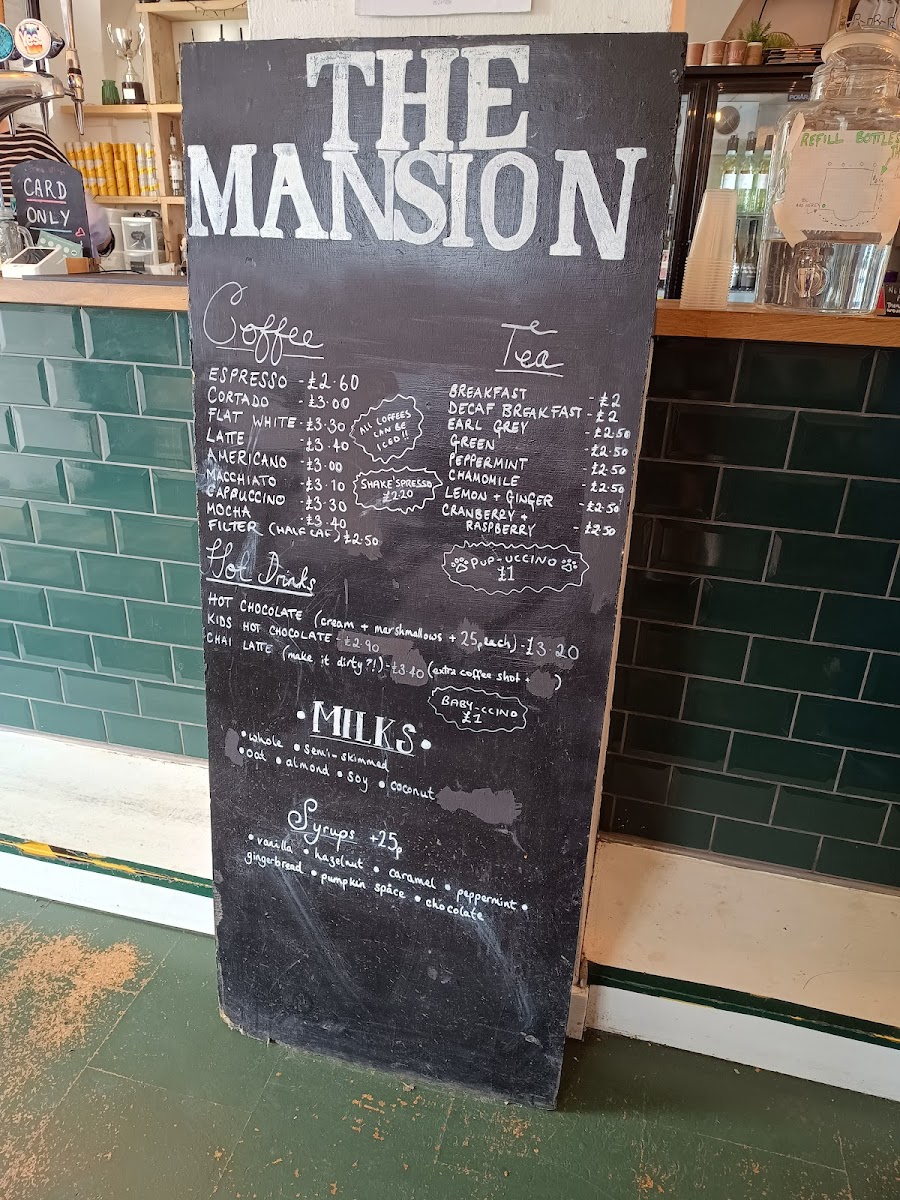 THE
MANSION
CARD
ONLY
REFILL BOTTLES
Coffee
ESPRESSO - £2.60
CORTADO - £3.00
FLAT WHITE - £3.30
LATTE - £3.40
AMERICANO - £3.00
MACCHIATO - £3.10
CAPPUCCINO - £3.30
MOCHA - £3.40
FILTER (HALF CAF) £2.50
ALL COFFEES
CAN BE
ICED!!
SHAKE'SPRESSO
£2.20
Tea
BREAKFAST - £2
DECAF BREAKFAST - £2
EARL GREY - £2.50
GREEN - £2.50
PEPPERMINT - £2.50
CHAMOMILE - £2.50
LEMON + GINGER - £2.50
CRANBERRY +
RASPBERRY - £2.50
PUP-UCCINO
£1
Hot Drinks
HOT CHOCOLATE (cream + marshmallows + 25p each) - £3.20
KIDS HOT CHOCOLATE - £2.90
CHAI LATTE (make it dirty?!) - £3.40 (extra coffee shot + )
BABY-CCINO
£1
• MILKS •
• whole • semi-skimmed
• oat • almond • soy • coconut
Syrups +25p
• vanilla • hazelnut • caramel • peppermint •
gingerbread • pumpkin spice • chocolate